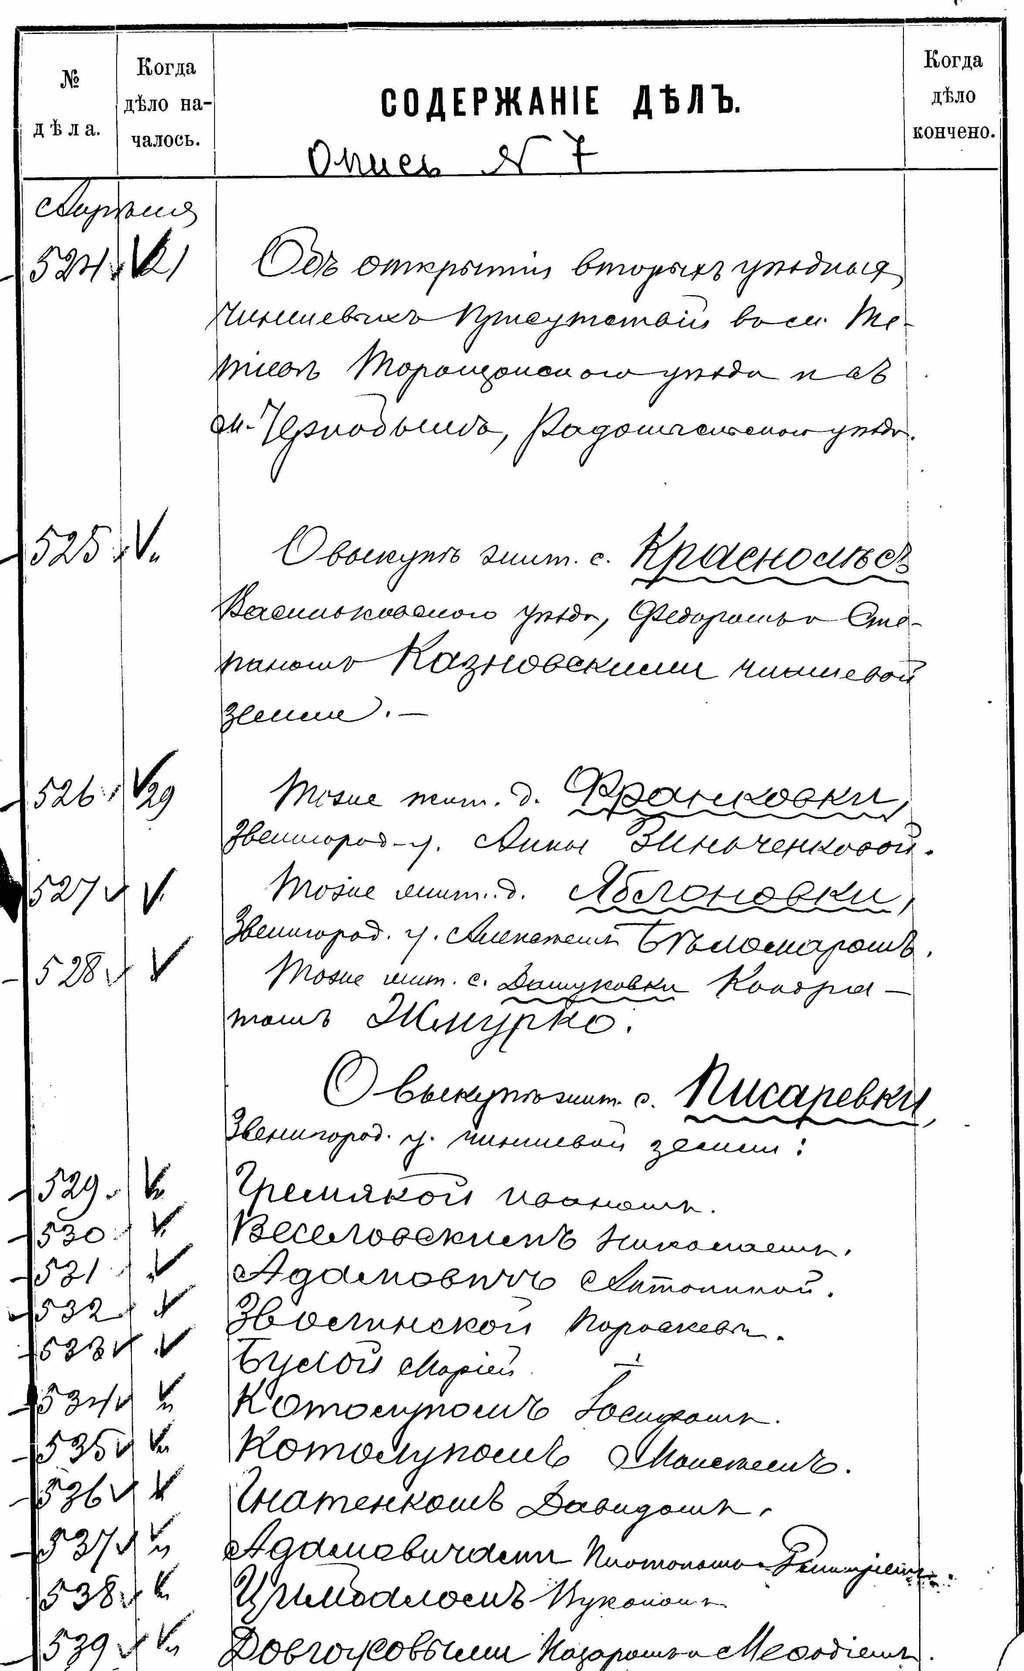 № дѣла.
Когда дѣло началось.
СОДЕРЖАНІЕ ДѢЛЪ.
Когда дѣло кончено.
Опись N 7
Апрѣля
524 21 Объ открытіи вторыхъ уѣздныхъ
чиншевыхъ Присутствій въ м. Те-
тіевѣ Таращанскаго уѣзда и въ
м. Чернобылѣ, Радомысльскаго уѣзда.
525 " О выкупѣ жит. с. Краснолѣсъ
Васильковскаго уѣзда, Федоромъ и Сте-
паномъ Казновскими чиншевой
земли. —
526 29 Тоже жит. д. Франковки,
Звенигород. у. Анны Зинченковой.
527 Тоже жит. д. Яблоновки,
Звенигород. у. Алексѣемъ Бѣломаромъ.
528 Тоже жит. с. Дашуковки Кондра-
томъ Жмурко.
О выкупѣ жит. с. Писаревки,
Звенигород. у. чиншевой земли:
529 " Гремякой Иваномъ.
530 " Веселовскимъ Николаемъ.
531 " Адамовичъ Антониной.
532 " Зволинской Параскев.
533 " Булой Маріей.
534 " Котолупомъ Іосифомъ.
535 " Котолупомъ Моисеемъ.
536 " Гнатенкомъ Давидомъ.
537 " Адамовичами Платономъ и
538 " Цимбаломъ Лукою
539 " Довгоусовыми Назаромъ и Мефодіемъ.